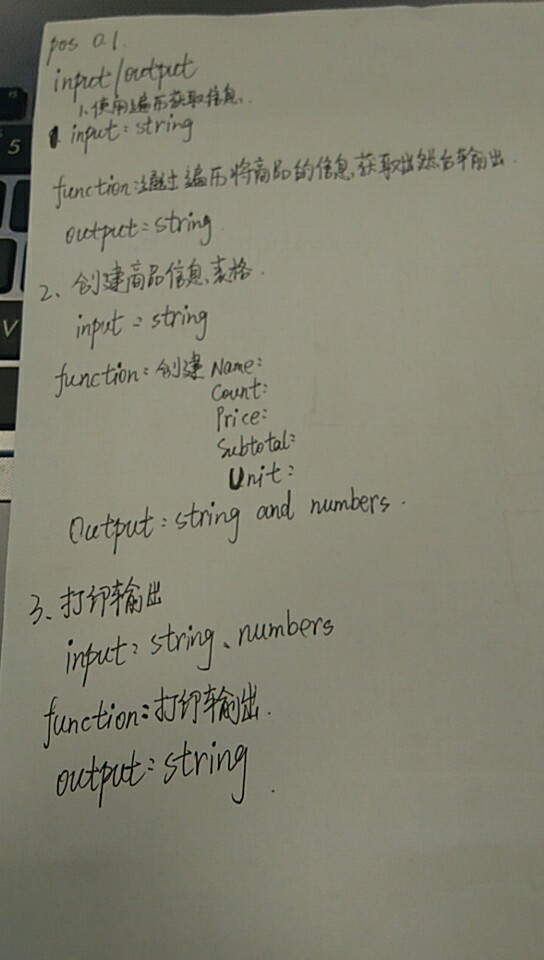 pos 0.1.
input/output
1、使用遍历获取信息.
1. input: string
function: 通过遍历将商品的信息获取出然后输出.
output: string.
2、创建商品信息表格.
input: string
function: 创建 Name:
Count:
Price:
Subtotal:
Unit:
Output: string and numbers.
3、打印输出
input: string、numbers
function: 打印输出.
output: string.
5
V